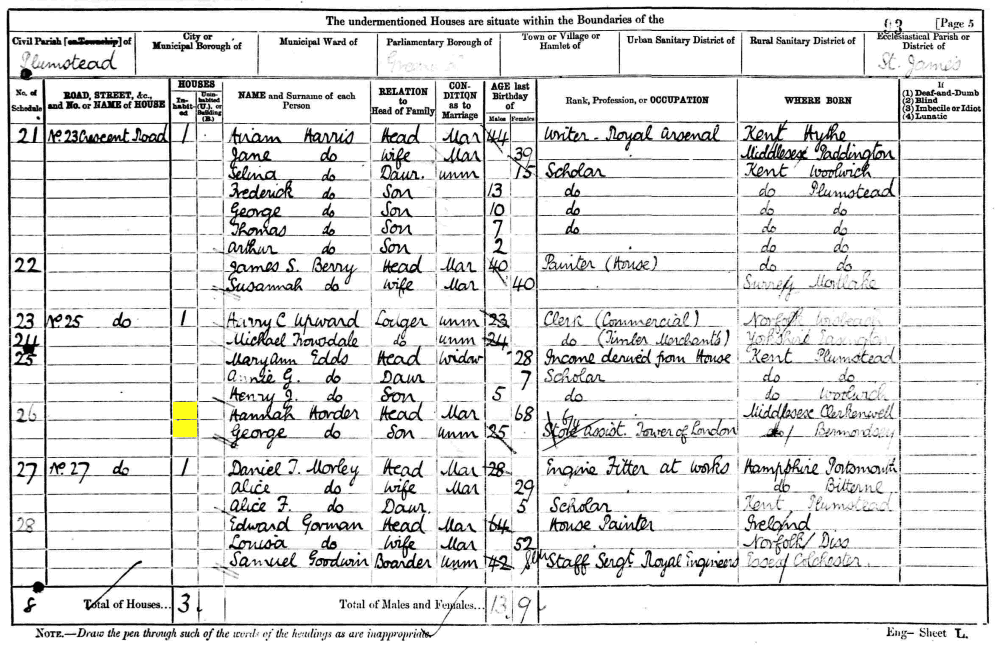 The undermentioned Houses are situate within the Boundaries of the
93 [Page 5
Civil Parish [or Township] of
City or Municipal Borough of
Municipal Ward of
Parliamentary Borough of
Town or Village or Hamlet of
Urban Sanitary District of
Rural Sanitary District of
Ecclesiastical Parish or District of
Plumstead St. James
No. of Schedule
ROAD, STREET, &c., and No. or NAME of HOUSE
HOUSES
Inhabited
Uninhabited (U.), or Building (B.)
NAME and Surname of each Person
RELATION to Head of Family
CONDITION as to Marriage
AGE last Birthday of
Males Females
Rank, Profession, or OCCUPATION
WHERE BORN
If
(1) Deaf-and-Dumb
(2) Blind
(3) Imbecile or Idiot
(4) Lunatic
21 No. 23 Crescent Road 1 Hiram Harris Head Mar 44 Writer - Royal Arsenal Kent Hythe
Jane do Wife Mar 39 Middlesex Paddington
Selina do Daur. unm 15 Scholar Kent Woolwich
Frederick do Son 13 do do Plumstead
George do Son 10 do do do
Thomas do Son 7 do do do
Arthur do Son 2 do do
22 James S. Berry Head Mar 40 Painter (House) do do
Susannah do Wife Mar 40 Surrey Mortlake
23 No. 25 do 1 Harry C Upward Lodger unm 23 Clerk (Commercial) Norfolk
24 Michael Trowsdale do unm 24 do (Timber Merchants) Yorkshire
25 Mary Ann Edds Head Widow 28 Income derived from House Kent Plumstead
Annie G. do Daur 7 Scholar do do
Henry J. do Son 5 do do Woolwich
26 Hannah Horder Head Mar 68 Middlesex Clerkenwell
George do Son unm 25 Store Assist. Tower of London do Bermondsey
27 No. 27 do 1 Daniel T. Morley Head Mar 28 Engine Fitter at works Hampshire Portsmouth
Alice do Wife Mar 29 do Bitterne
Alice F. do Daur. 5 Scholar Kent, Plumstead
28 Edward Gorman Head Mar 64 House Painter Ireland
Louisa do Wife Mar 52 Norfolk Diss
Samuel Goodwin Boarder Unm 42 Staff Sergt Royal Engineers Essex Colchester
8 Total of Houses... 3 Total of Males and Females... 13 9
NOTE.—Draw the pen through such of the words of the headings as are inappropriate.
Eng— Sheet L.